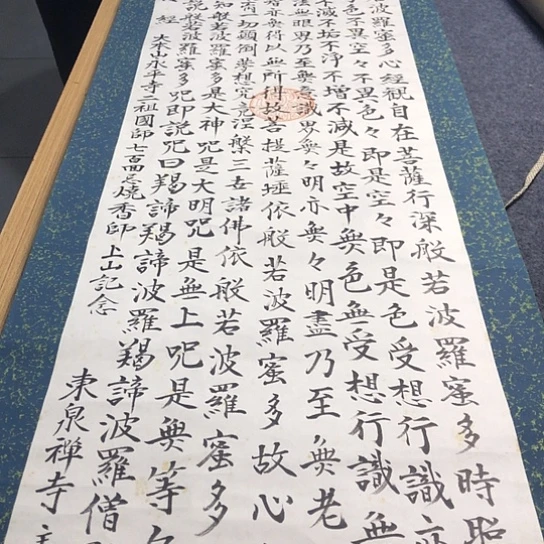 波羅蜜多心經觀自在菩薩行深般若波羅蜜多時照
色不異空々不異色々即是空々即是色受想行識亦
不滅不垢不淨不增不減是故空中無色無受想行識無
法無眼界乃至無意識界無々明亦無々明盡乃至無老
亦無得以無所得故菩提薩埵依般若波羅蜜多故心
一切顛倒夢想究竟涅槃三世諸佛依般若波羅蜜多
知般若波羅蜜多是大神咒是大明咒是無上咒是無等
説般若波羅蜜多咒即説咒曰羯諦羯諦波羅羯諦波羅僧
經 大本山永平寺二祖國師七百回忌燒香師上山記念
東泉禪寺